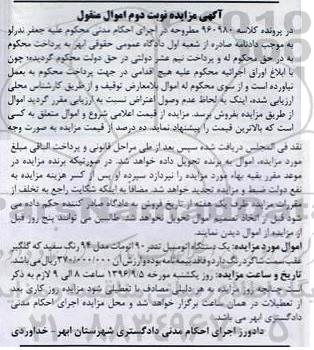 آگهی مزایده نوبت دوم اموال منقول
در پرونده کلاسه ۹۶۰۹۸۰ مطروحه در اجرای احکام مدنی محکوم علیه جعفر بدرلو
به موجب دادنامه صادره از شعبه اول دادگاه عمومی حقوقی ابهر به پرداخت محکوم
به در حق محکوم له و پرداخت نیم عشر دولتی در حق دولت محکوم گردیده؛ چون
با ابلاغ اوراق اجرائیه محکوم علیه هیچ اقدامی در جهت پرداخت محکوم به بعمل
نیاورده است و از سوی محکوم له اموال بلامعارض توقیف و از طریق کارشناس محلی
ارزیابی شده، اینک به لحاظ عدم وصول اعتراض نسبت به ارزیابی مقرر گردید اموال
از طریق مزایده بفروش برسد. مزایده از قیمت اعلامی شروع و اموال متعلق به کسی
است که بالاترین قیمت را پیشنهاد نماید. ده درصد از قیمت مزایده به صورت وجه
نقد فی المجلس دریافت شده سپس بعد از طی مراحل قانونی و پرداخت الباقی مبلغ
مورد مزایده، اموال به برنده تحویل داده خواهد شد. در صورتیکه برنده مزایده در
موعد مقرر بقیه بهاء مورد مزایده را نپردازد سپرده او پس از کسر هزینه مزایده به
نفع دولت ضبط و مزایده تجدید خواهد شد. مضافا به اینکه شکایت راجع به تخلف از
مقررات مزایده ظرف یک هفته از تاریخ فروش به دادگاه صادر کننده حکم داده می
شود قبل از اتخاذ تصمیم اموال تحویل نخواهد شد. طالبین می توانند پنج روز قبل
از مزایده از اموال دیدن نمایند.
اموال مورد مزایده: یک دستگاه اتومبیل تندر ۹۰ اتومات مدل ۹۴ رنگ سفید که گلگیر
عقب سمت شاگرد رنگ دارد و فاقد بیمه نامه بوده و به ارزش ۳۷۰/۰۰۰/۰۰۰ ریال می باشد.
تاریخ و ساعت مزایده: روز یکشنبه مورخه ۱۳۹۶/۹/۵ ساعت ۸ الی ۹ لازم به ذکر
است چنانچه روز مزایده به هر دلیلی مصادف با تعطیلی شود مزایده روز کاری بعد
از تعطیلات در همان ساعت برگزار خواهد شد و محل مزایده اجرای احکام مدنی
دادگستری ابهر می باشد.
دادورز اجرای احکام مدنی دادگستری شهرستان ابهر - خداوردی